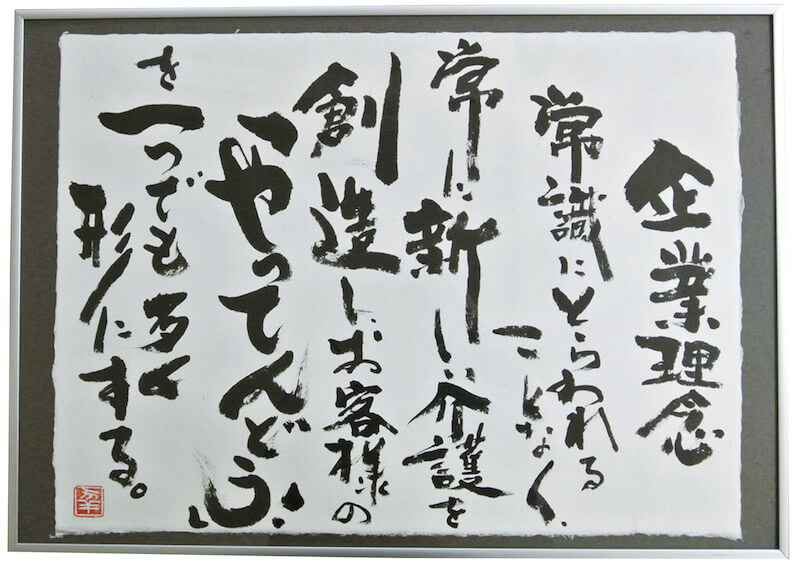 企業理念
常識にとらわれる
ことなく、
常に新しい介護を
創造し、お客様の
「やってんどう!」
を一つでも多く
形にする。